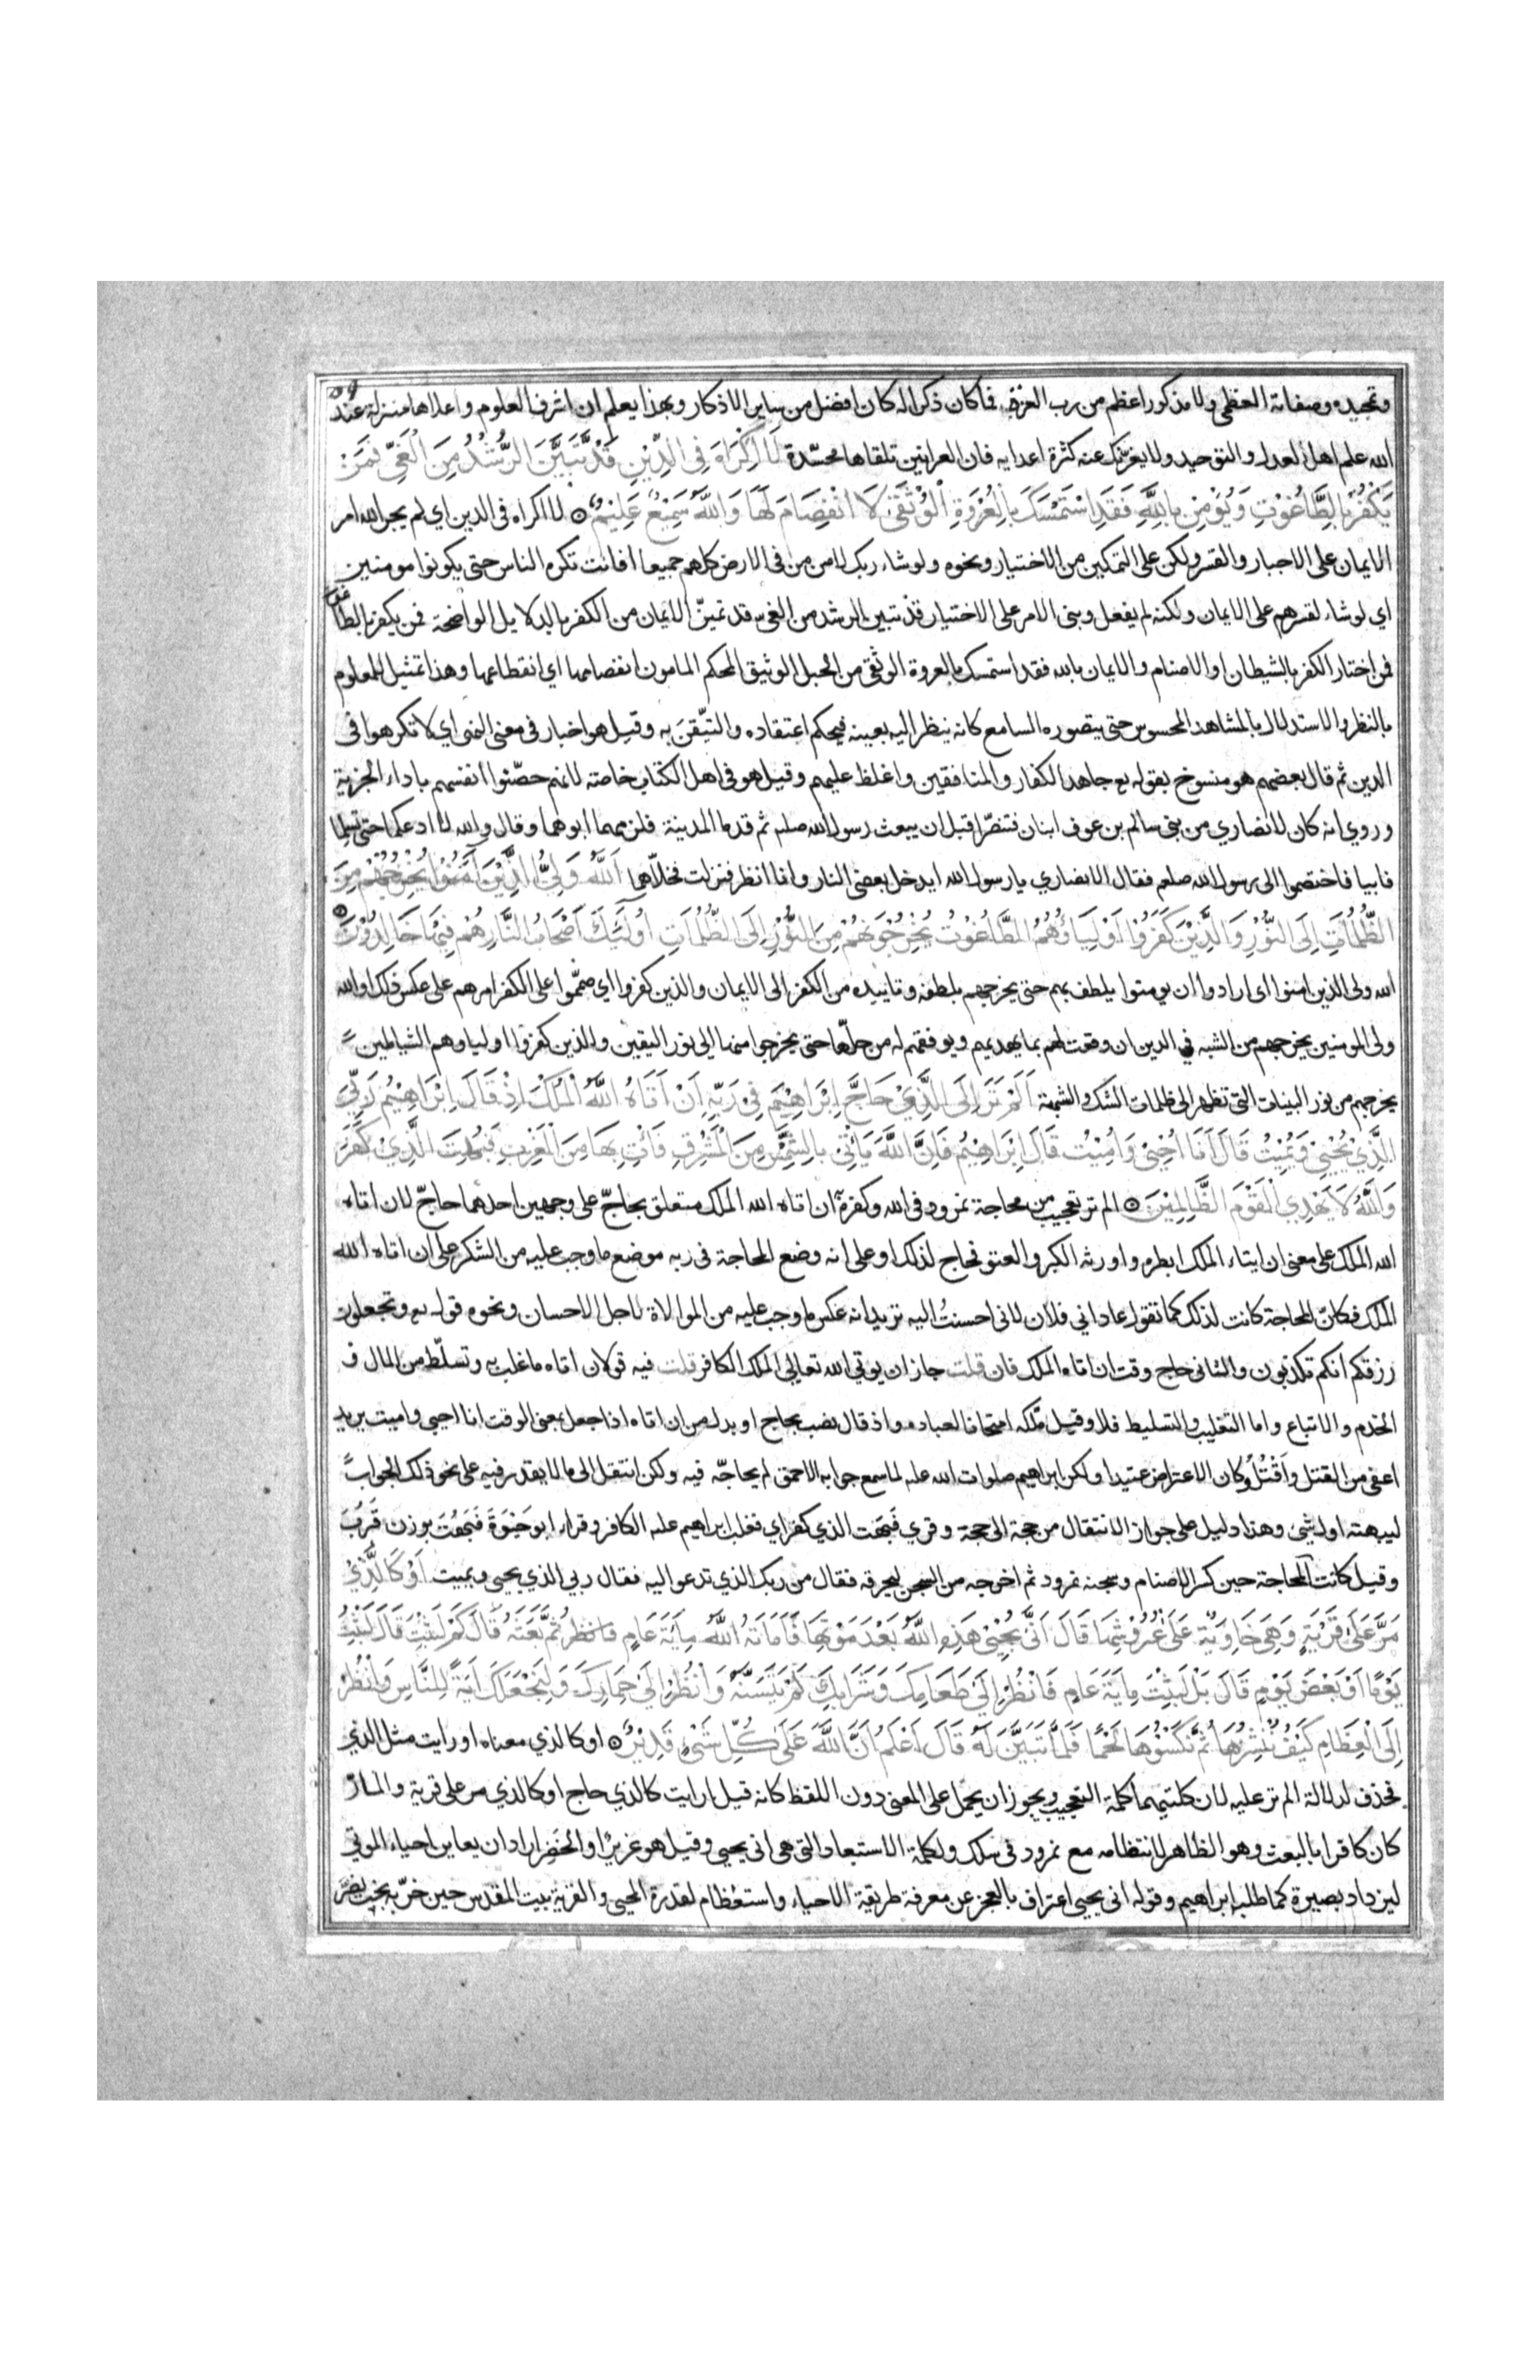 وتمجيده وصفاته العظمى ولا مذكور اعظم من رب العزة فما كان ذكرا له كان افضل من ساير الاذكار وبهذا يعلم ان اشرف العلوم واعلاها منزلة عند
الله علم اهل العدل والتوحيد ولا يغرنك عنه كثرة اعدايه فان العرانين تلقاها محسّدة لَا اِكْرَاهَ فِي الدِّيْنِ قَدْ تَّبَيَّنَ الرُّشْدُ مِنَ الْغَيِّ فَمَنْ
يَكْفُرْ بِالطَّاغُوْتِ وَيُؤْمِنْ بِاللَّهِ فَقَدِ اسْتَمْسَكَ بِالْعُرْوَةِ الْوُثْقَىٰ لَا انْفِصَامَ لَهَا وَاللَّهُ سَمِيْعٌ عَلِيْمٌ لا اكراه في الدين اي لم يجر الله امر
الايمان على الاجبار والقسر ولكن على التمكين من الاختيار ونحوه ولو شاء ربك لامن من في الارض كلهم جميعا افانت تكره الناس حتى يكونوا مومنين
اي لو شاء لقسرهم على الايمان ولكنه لم يفعل وبنى الامر على الاختيار قد تبين الرشد من الغي قد تميزّ الايمان من الكفر بالدلايل الواضحة فمن يكفر بالطاغوت
فمن اختار الكفر بالشيطان او الاصنام والايمان بالله فقد استمسك بالعروة الوثقى من الحبل الوثيق المحكم المامون انفصامها اي انقطاعها وهذا تمثيل للمعلوم
بالنظر والاستدلال بالمشاهد المحسوس حتى يتصوره السامع كانه ينظر اليه بعينه فيحكم اعتقاده والتيّقن به وقيل هو اخبار في معنى النهي اي لا تكرهوا في
الدين ثم قال بعضهم هو منسوخ بقوله تع جاهد الكفار والمنافقين واغلظ عليهم وقيل هو في اهل الكتاب خاصة لانهم حصّنوا انفسهم باداء الجزية
وروي انه كان لانصاري من بني سالم بن عوف ابنان فتنصّرا قبل ان يبعث رسول الله صلعم ثم قدما المدينة فلزمهما ابوهما وقال والله لا ادعكما حتى تسلما
فابيا فاختصموا الى رسول الله صلعم فقال الانصاري يا رسول الله ايدخل بعضي النار وانا انظر فنزلت فخلّاهما اَللَّهُ وَلِيُّ الَّذِيْنَ آمَنُوْا يُخْرِجُهُمْ مِنَ
الظُّلُمَاتِ اِلَى النُّوْرِ وَالَّذِيْنَ كَفَرُوْا اَوْلِيَاؤُهُمُ الطَّاغُوْتُ يُخْرِجُوْنَهُمْ مِنَ النُّوْرِ اِلَى الظُّلُمَاتِ اُولَٰئِكَ اَصْحَابُ النَّارِ هُمْ فِيْهَا خَالِدُوْنَ
الله ولي الذين امنوا اي ارادوا ان يومنوا يلطف بهم حتى يخرجهم بلطفه وتاييده من الكفر الى الايمان والذين كفروا اي صمّموا على الكفر امرهم على عكس ذلك او الله
ولي المومنين يخرجهم من الشبه في الدين ان وقعت لهم بما يهديهم ويوفقهم له من حلّها حتى يخرجوا منها الى نور اليقين والذين كفروا اولياوهم الشياطين
يخرجهم من نور البينات التي تظهر الى ظلمات الشك والشبهة اَلَمْ تَرَ اِلَى الَّذِيْ حَاجَّ اِبْرَاهِيْمَ فِيْ رَبِّهِ اَنْ آتَاهُ اللَّهُ الْمُلْكَ اِذْ قَالَ اِبْرَاهِيْمُ رَبِّيَ
الَّذِيْ يُحْيِيْ وَيُمِيْتُ قَالَ اَنَا اُحْيِيْ وَاُمِيْتُ قَالَ اِبْرَاهِيْمُ فَاِنَّ اللَّهَ يَأْتِيْ بِالشَّمْسِ مِنَ الْمَشْرِقِ فَأْتِ بِهَا مِنَ الْمَغْرِبِ فَبُهِتَ الَّذِيْ كَفَرَ
وَاللَّهُ لَا يَهْدِي الْقَوْمَ الظَّالِمِيْنَ الم تر تعجيب من محاجة نمرود في الله وكفره ان اتاه الله الملك متعلق بحاجّ على وجهين احدهما حاجّ لان اتاه
الله الملك على معنى ان ايتاء الملك ابطره واورثه الكبر والعتو فحاج لذلك او على انه وضع المحاجة في ربه موضع ما وجب عليه من الشكر على ان اتاه الله
الملك فكانّ المحاجة كانت لذلك كما تقول عاداني فلان لاني احسنتُ اليه تريد انه عكس ما وجب عليه من الموالاة لاجل الاحسان ونحوه قوله تع وتجعلون
رزقكم انكم تكذبون والثاني حاج وقت ان اتاه الملك فان قلت جاز ان يوتي الله تعالى الملك الكافر قلت فيه قولان اتاه ما غلب به وتسلّط من المال و
الخدم والاتباع واما التغليب والتسليط فلا وقيل ملّكه امتحانا لعباده واذ قال نصب بحاج او بدل من ان اتاه اذا جعل بمعنى الوقت انا احيي واميت يريد
اعفي من القتل وَاَقْتُل وكان الاعتراض عتيدا ولكن ابراهيم صلوات الله عليه لما سمع جوابه الاحمق لم يحاجّه فيه ولكن انتقل الى ما لا يقدر فيه على نحو ذلك الجواب
ليبهته اول شي وهذا دليل على جواز الانتقال من حجة الى حجة وقري فَبَهَت الذي كفر اي فغلب ابراهيم عليه الكافر وقراء ابو حَيْوَةَ فَبَهُتَ بوزن قَرُبَ
وقيل كانت المحاجة حين كسر الاصنام وسجنه نمرود ثم اخرجه من السجن ليحرقه فقال من ربك الذي تدعو اليه فقال ربي الذي يحيي ويميت اَوْ كَالَّذِيْ
مَرَّ عَلَىٰ قَرْيَةٍ وَهِيَ خَاوِيَةٌ عَلَىٰ عُرُوْشِهَا قَالَ اَنَّىٰ يُحْيِيْ هَٰذِهِ اللَّهُ بَعْدَ مَوْتِهَا فَاَمَاتَهُ اللَّهُ مِايَةَ عَامٍ ثُمَّ بَعَثَهُ قَالَ كَمْ لَبِثْتَ قَالَ لَبِثْتُ
يَوْمًا اَوْ بَعْضَ يَوْمٍ قَالَ بَلْ لَبِثْتَ مِايَةَ عَامٍ فَانْظُرْ اِلَىٰ طَعَامِكَ وَشَرَابِكَ لَمْ يَتَسَنَّهْ وَانْظُرْ اِلَىٰ حِمَارِكَ وَلِنَجْعَلَكَ آيَةً لِلنَّاسِ وَانْظُرْ
اِلَى الْعِظَامِ كَيْفَ نُنْشِرُهَا ثُمَّ نَكْسُوْهَا لَحْمًا فَلَمَّا تَبَيَّنَ لَهُ قَالَ اَعْلَمُ اَنَّ اللَّهَ عَلَىٰ كُلِّ شَيْءٍ قَدِيْرٌ او كالذي معناه او رايت مثل الذي
فحذف لدلالة الم تر عليه لان كلتيهما كلمة التعجيب ويجوز ان يحمل على المعنى دون اللفظ كانه قيل ارايت كالذي حاج او كالذي مر على قرية والمارّ
كان كافرا بالبعث وهو الظاهر لانتظامه مع نمرود في سلك ولكلمة الاستبعاد التي هي انى يحيي وقيل هو عزيرٌ او الخَضِر اراد ان يعاين احياء الموتى
ليزداد بصيرة كما طلبه ابراهيم وقوله انى يحيي اعتراف بالعجز عن معرفة طريقة الاحياء واستعظام لقدرة المحيي والقرية بيت المقدس حين خرّبه بخت نصّر